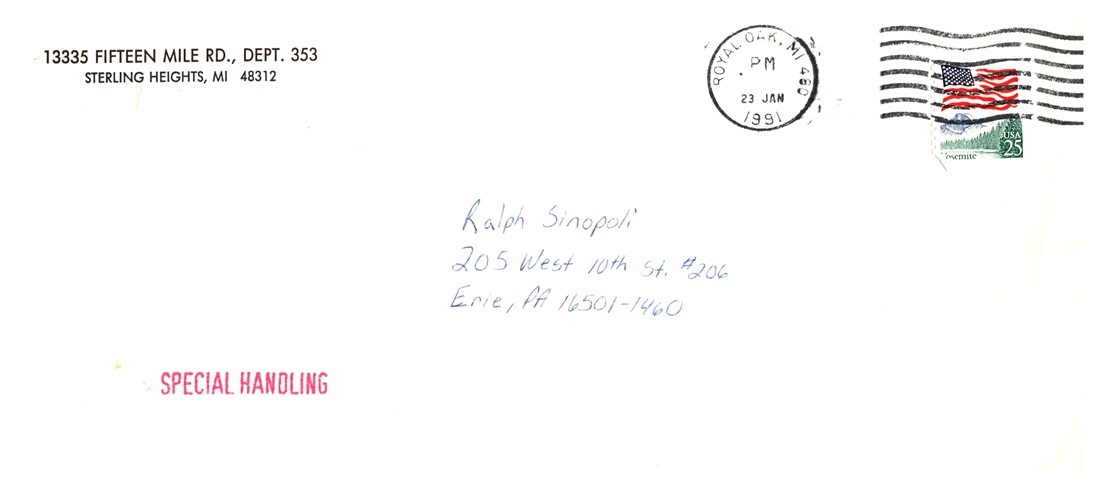 13335 FIFTEEN MILE RD., DEPT. 353
STERLING HEIGHTS, MI 48312
ROYAL OAK, MI 480
PM
23 JAN
1991
USA
25
Yosemite
Ralph Sinopoli
205 West 10th St. #206
Erie, PA 16501-1460
SPECIAL HANDLING